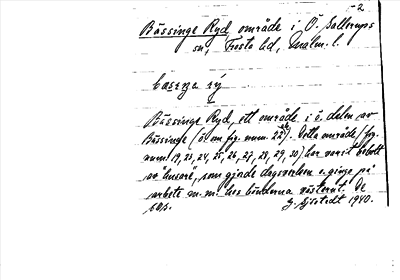 -2
Bässinge Ryd område i Ö. Sallerups
sn, Frosta hd, Malm. l.
basıŋe rý
Bässinge Ryd, ett område i ö. delen av
Bässinge (ö. om fg. num. 22). Detta område (fg.
num 19, 23, 24, 25, 26, 27, 28, 29, 30) har varit bebott
av husare", som gjorde dagsverken o. ginge på
arbete m.m. hos bönderna västerut. De
G. Sjöstedt 1940.